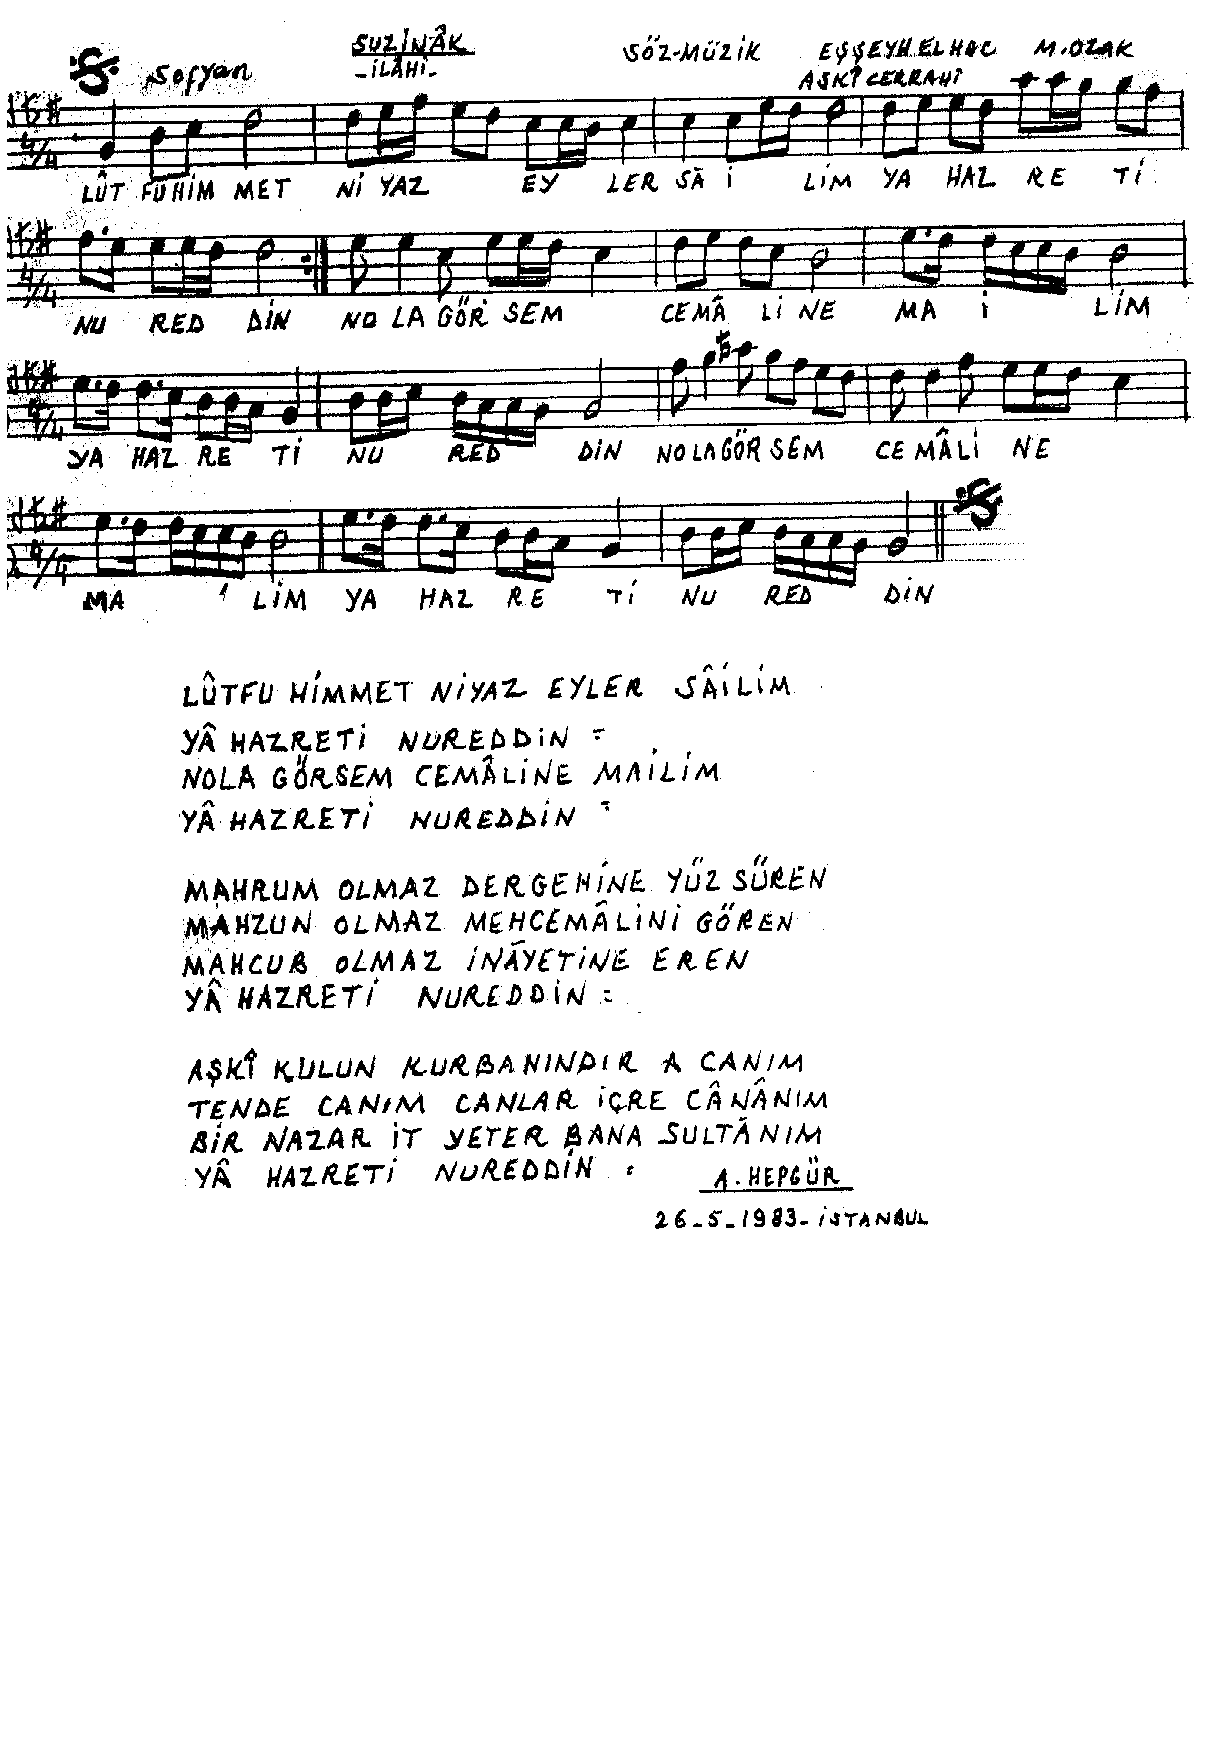 SUZİNÂK
Sofyan
-İLÂHİ-
SÖZ-MÜZİK EŞŞEYH ELHAC M. OZAK
AŞKÎ CERRAHİ
4/4
LÛT FU HİM MET Nİ YAZ EY LER SÂ İ LİM YA HAZ RE Tİ
4/4
NU RED DİN NO LA GÖR SEM CEMÂ Lİ NE MA İ LİM
4/4
YA HAZ RE Tİ NU RED DİN NO LA GÖR SEM CE MÂ Lİ NE
4/4
MA İ LİM YA HAZ RE Tİ NU RED DİN
LÛTFU HİMMET NİYAZ EYLER SÂİLİM
YÂ HAZRETİ NUREDDİN =
NOLA GÖRSEM CEMÂLİNE MAİLİM
YÂ HAZRETİ NUREDDİN =
MAHRUM OLMAZ DERGEHİNE YÜZ SÜREN
MAHZUN OLMAZ MEHCEMÂLİNİ GÖREN
MAHCUB OLMAZ İNÂYETİNE EREN
YÂ HAZRETİ NUREDDİN =
AŞKÎ KULUN KURBANINDIR A CANIM
TENDE CANIM CANLAR İÇRE CÂNÂNIM
BİR NAZAR İT YETER BANA SULTÂNIM
YÂ HAZRETİ NUREDDİN :
A. HEPGÜR
26-5-1983-İSTANBUL